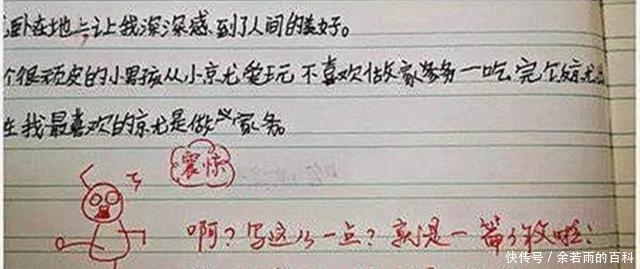 卧在地上让我深深感到了人间的美好。
个很顽皮的小男孩从小京尤爱玩不喜欢做家务一吃完个京尤
生我最喜欢的京尤是做家务。
震惊
啊?写这么一点?就是一篇作文啦!
快传号/余若雨的百科